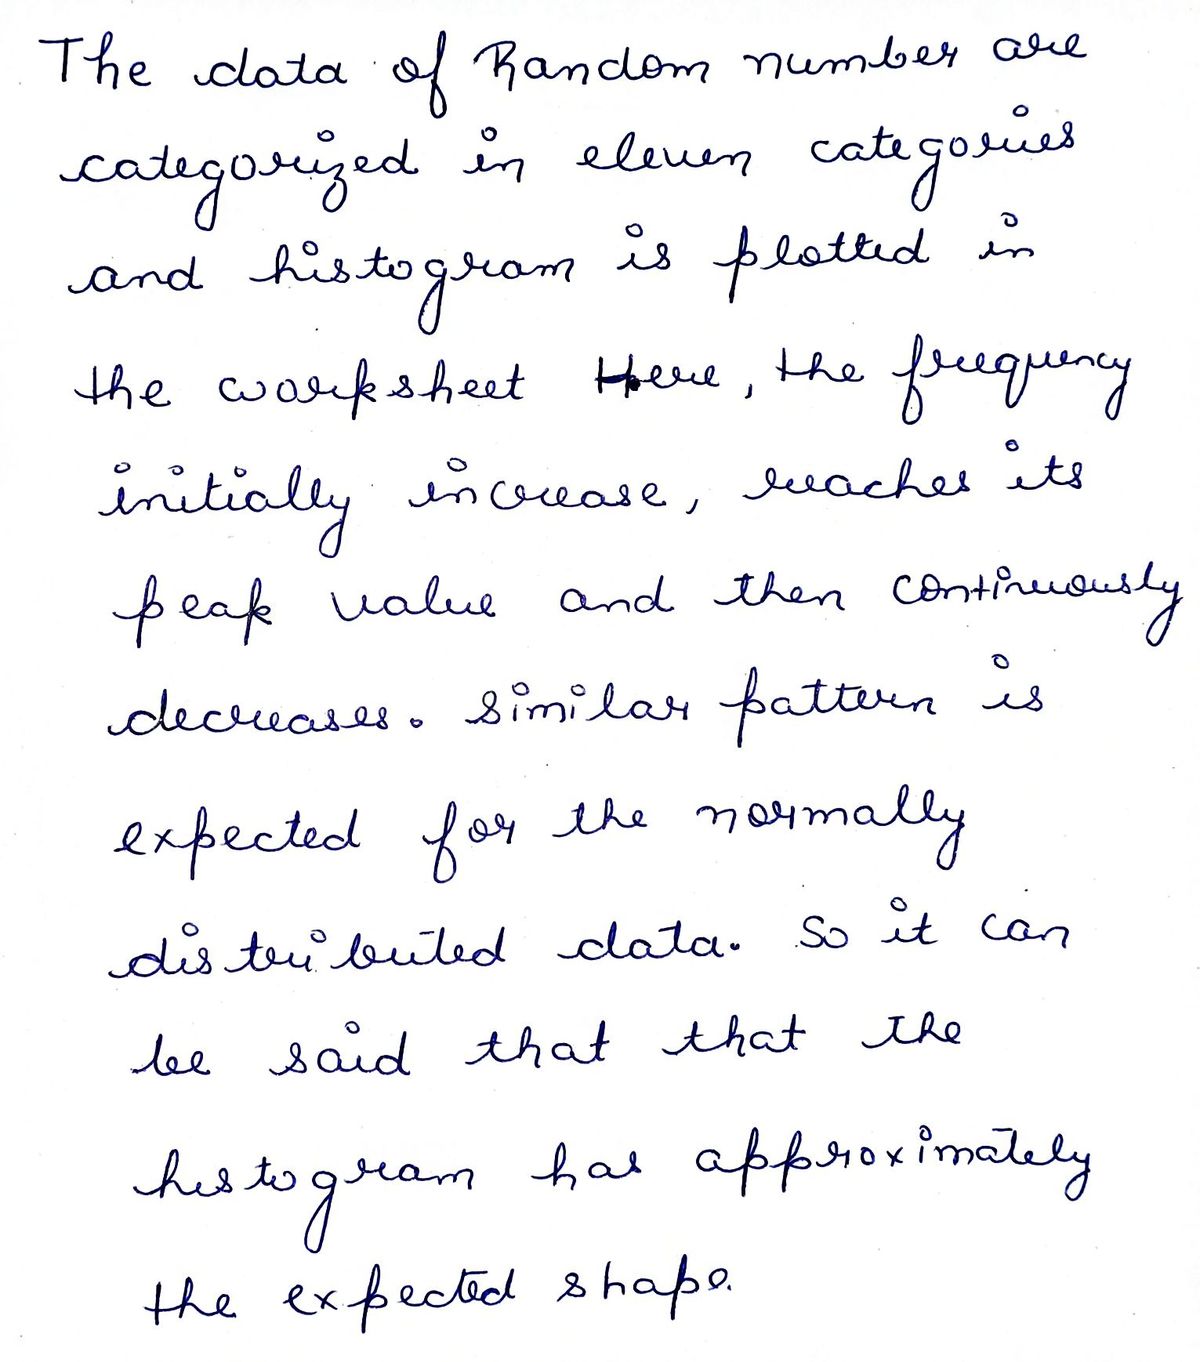 The data of Random number are
categorized in eleven categories
and histogram is plotted in
the worksheet Here, the frequency
initially increase, reaches its
peak value and then continuously
decreases. Similar pattern is
expected for the normally
distributed data. So it can
be said that that the
histogram has approximately
the expected shape.